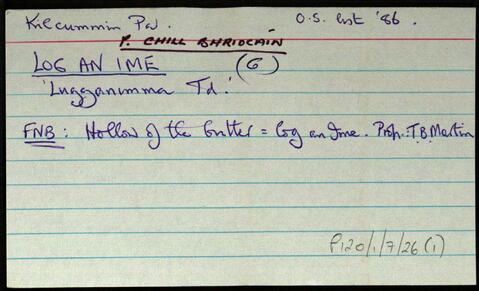 Kilcummin Par. O.S. list '86.
P. CHILL BHRIOCAIN
LOG AN IME (G)
'Lugganimma Td.'
FNB: Hollow of the butter = log an ime. Prop: T.B. Martin
P120/1/7/26(1)